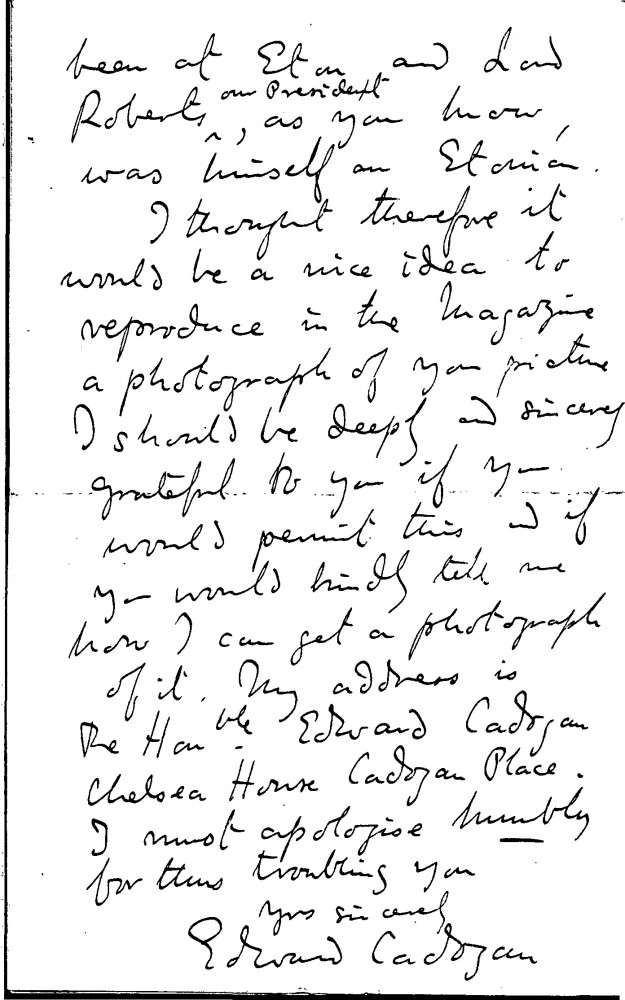 been at Eton and Lord
Roberts ^ our President, as you know,
was himself an Etonian.
I thought therefore it
would be a nice idea to
reproduce in the Magazine
a photograph of your picture
I should be deeply and sincerely
grateful to you if you
would permit this and if
you would kindly tell me
how I can get a photograph
of it. My address is
The Honble. Edward Cadogan
Chelsea House Cadogan Place.
I must apologise humbly
for thus troubling you
yrs sincerely
Edward Cadogan